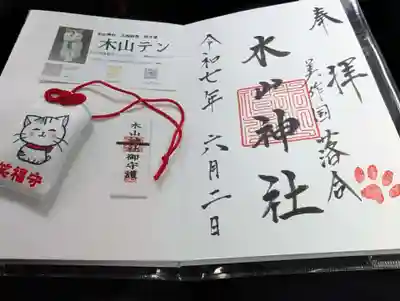 奉拝
美作国落合
木山神社
令和七年六月二日
木山テン
木山神社御守護
笑福守